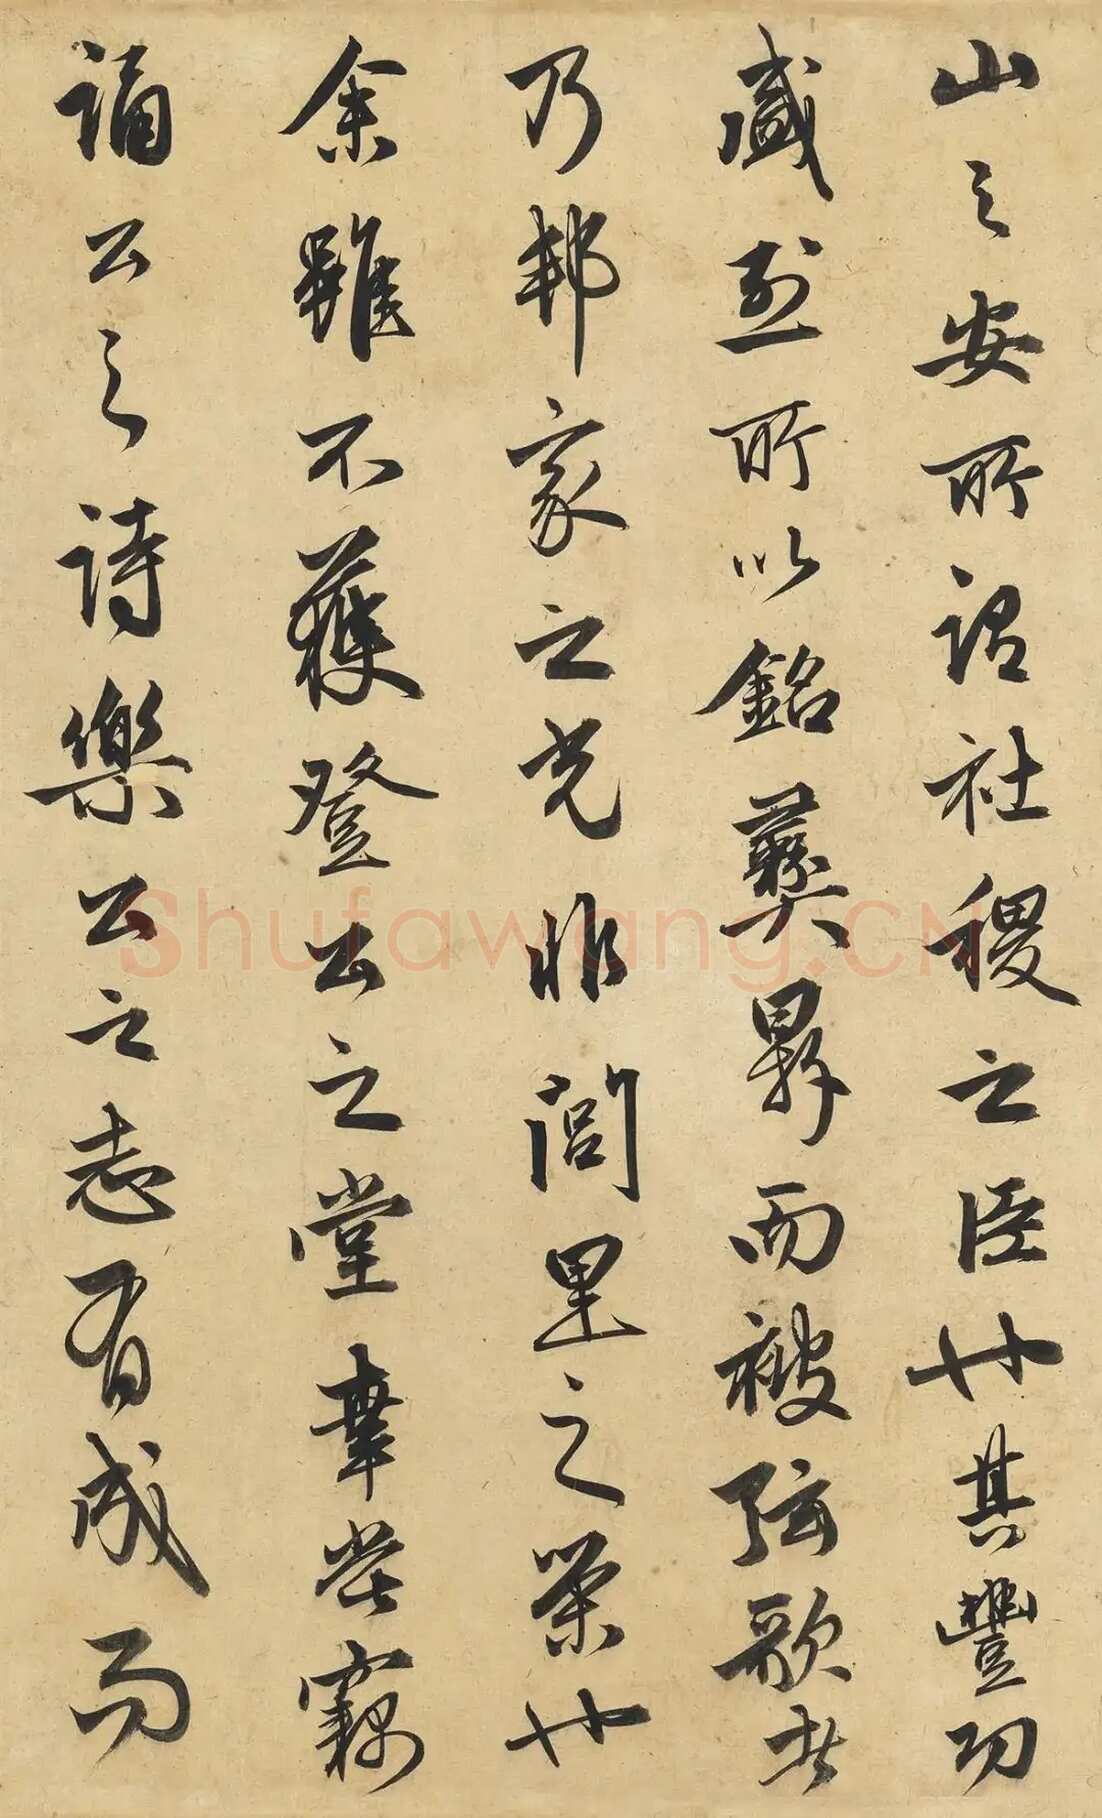 山之安所謂社稷之臣矣其豐功
盛烈所以銘彝鼎而被弦歌者
乃邦家之光非閭里之榮也
余雖不獲登公之堂幸嘗竊
誦公之詩樂公之志有成而
Shufawang.CN